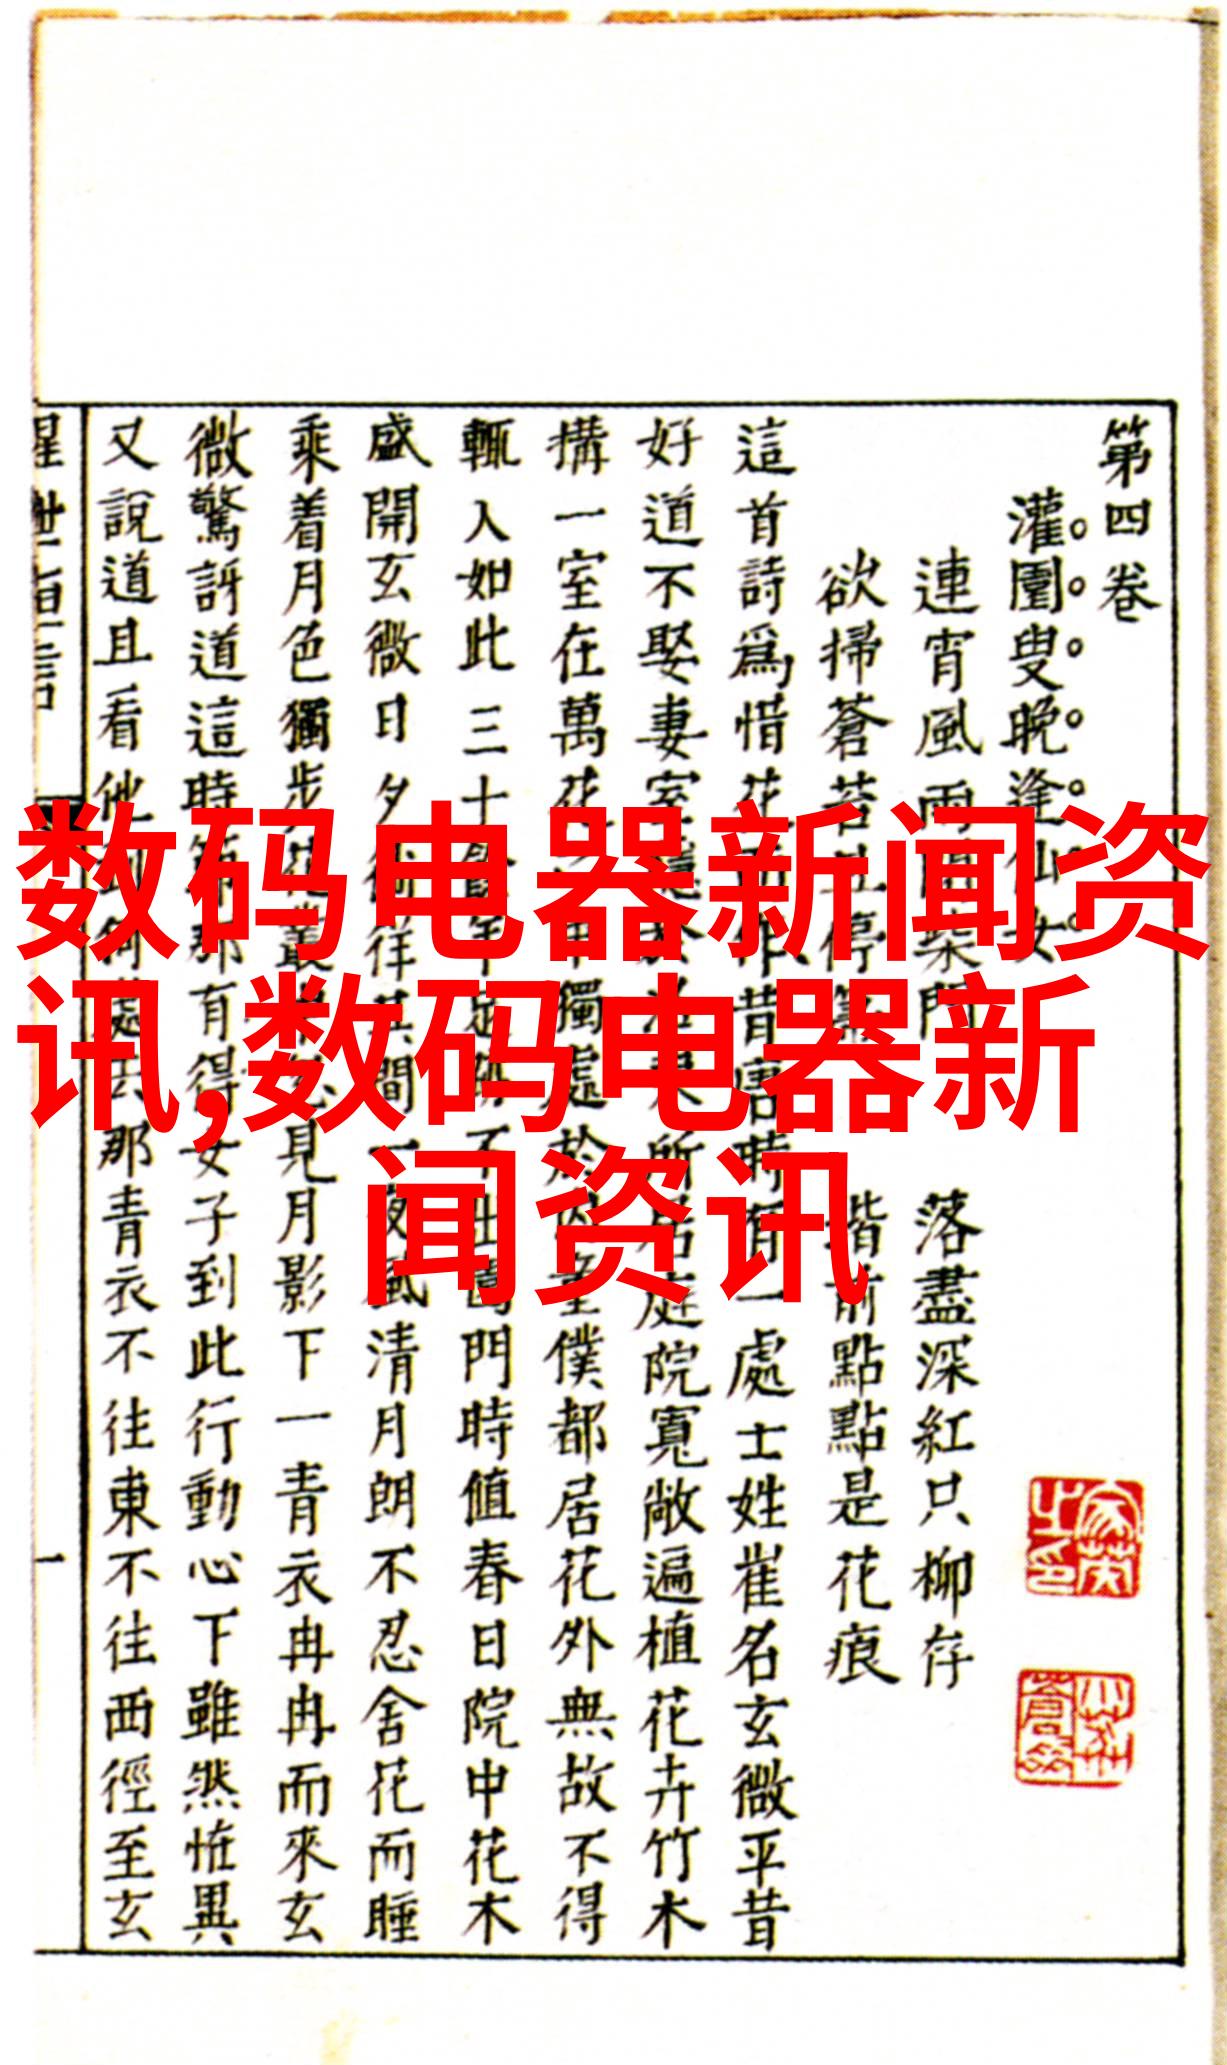 数码电器新闻资
讯,数码电器新
闻资讯
第四卷
灌園叟晚逢仙女
連宵風雨柴門 落盡深紅只柳存
欲掃蒼苔且停 階前點點是花痕
這首詩爲惜花作昔唐時有一處士姓崔名玄微平昔
好道不娶妻室於所居庭院寬敞遍植花卉竹木
搆一室在萬花獨處於童僕都居花外無故不得
輒入如此三十年不出門時值春日院中花木
盛開玄微日夕徉其間一夜風清月朗不忍舍花而睡
乘着月色獨步叢見月影下一青衣冉冉而來玄
微驚訝道這時那有得女子到此行動心下雖然怪異
又說道且看他到何處去那青衣不往東不往西徑至玄
一